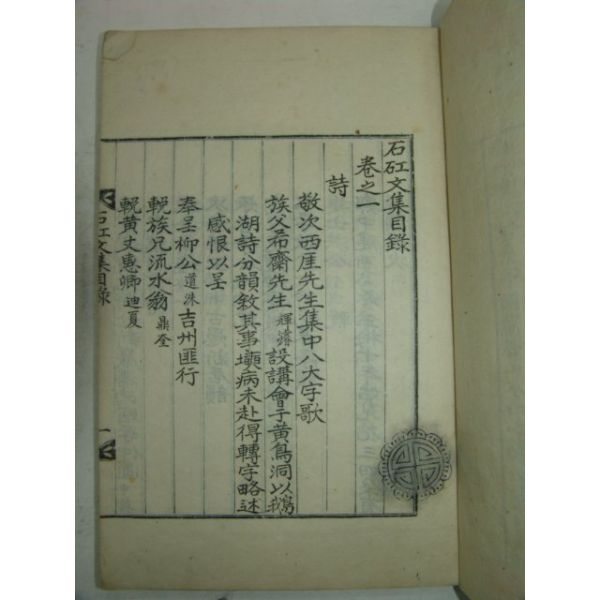 石矼文集目錄
卷之一
詩
敬次西厓先生集中八大字歌
族父希齋先生 輝濬 設講會于黃鳥洞以鵝
湖詩分韻敘其事壎病未赴得轉字略述
感恨以呈
奉呈柳公 道洙 吉州匪行
輓族兄流水翁 鼎奎
輓黃丈惠卿 迪夏
石矼文集目錄
一